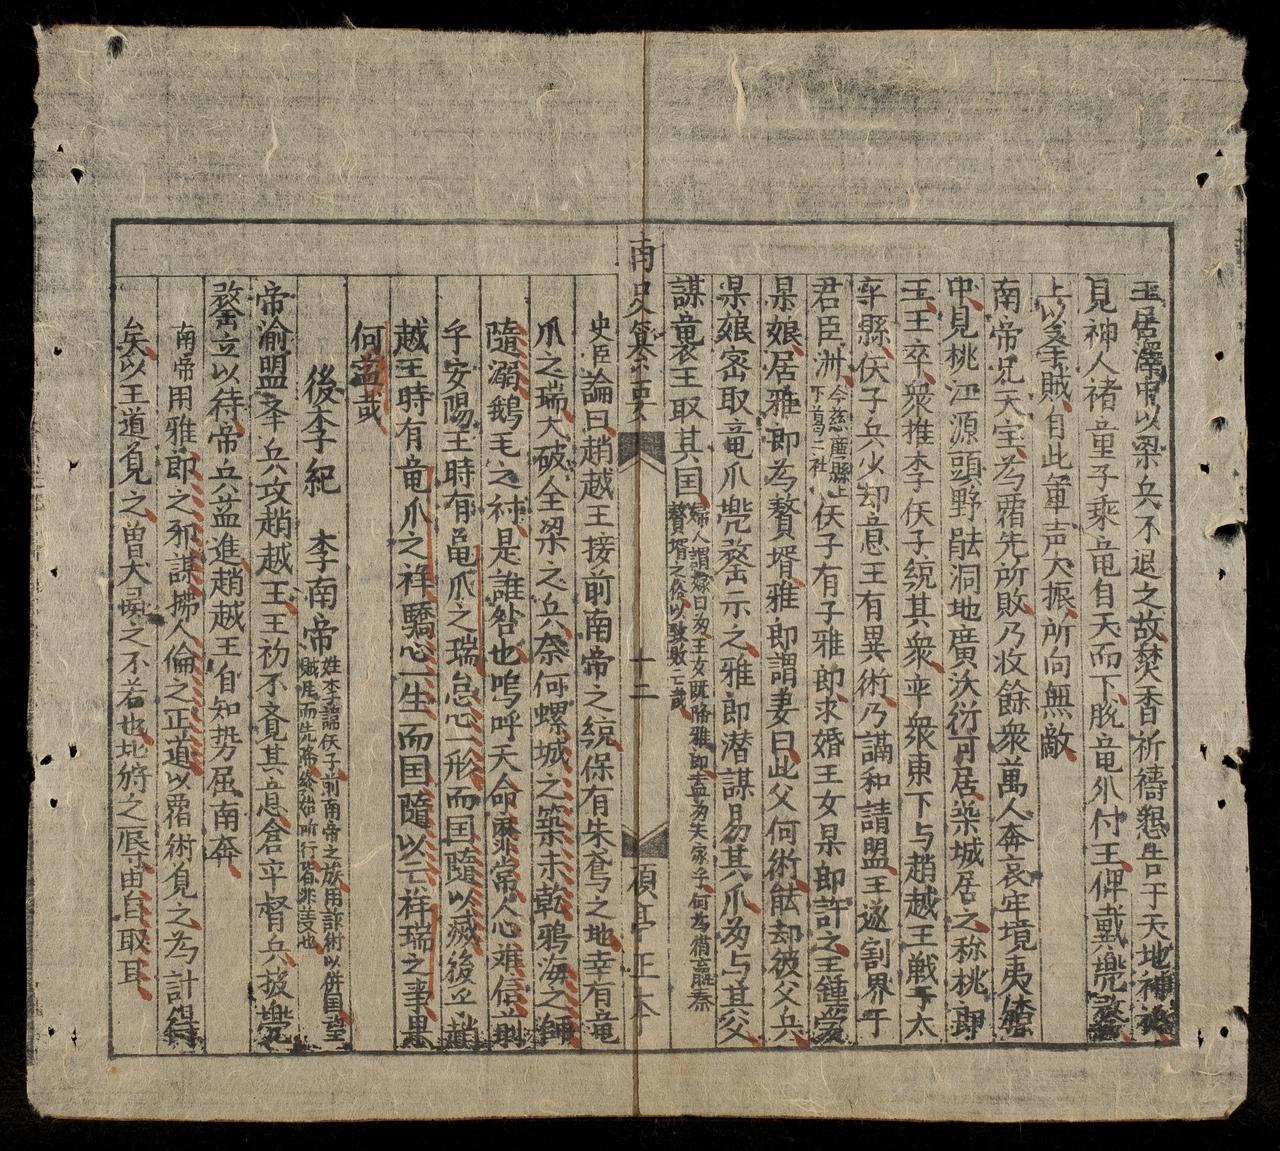 王居澤中以梁兵不退之故焚香祈禱懇告于天地神祗
見神人褚童子乘竜自天而下脫竜爪付王俾戴兠鍪
上以擊賊自此軍声大振所向無敵
南帝兄天宝為霸先所敗乃收餘衆萬人奔哀牢境夷獠
中見桃江源頭野能洞地廣沃衍可居築城居之称桃郎
王王卒衆推李佛子統其衆率衆東下与趙越王戦于太
平縣佛子兵少却意王有異術乃講和請盟王遂割界于
君臣洲今慈廉縣上下葛二社佛子有子雅郎求婚王女杲即許之王鍾爱
杲娘居雅郎為贅壻雅郎謂妻曰此父何術能却彼父兵
杲娘密取竜爪兠鍪示之雅郎潜謀易其爪為与其父
謀襲王取其囯婦人謂嫁曰
南史纂要 十二 正本
史臣論曰趙越王接前南帝之統保有朱鳶之地幸有竜
爪之瑞大破全梁之兵奈何螺城之築未乾鴉海之師
隨溺鵝毛之禍是誰咎也嗚呼天命靡常人心难信前
乎安陽王時有龜爪之瑞怠心一形而囯隨以滅後乎趙
越王時有竜爪之祥驕心一生而囯隨以亡祥瑞之事果
何益哉
後李紀 李南帝姓李諱佛子前南帝之族用詐術以併囯望賊屋而先降終始所行皆非善也
帝渝盟率兵攻趙越王王初不覚其意倉卒督兵披兠
鍪立以待帝兵益進趙越王自知势屈南奔
南帝用雅郎之邪謀拂人倫之正道以霸術負之為計得
矣以王道負之曽犬彘之不若也北狩之辱由自取耳